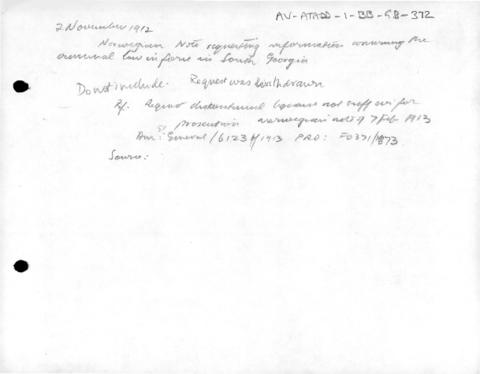 AV-ATADD-1-BB-GB-372
2 November 1912
Norwegian Note requesting information concerning the
criminal law in force in South Georgia
Do not include. Request was withdrawn
Rf. Request because not suff for
prosecution Norwegian note of 7 Feb 1913
General /6123 /1913 PRO: FO371/
Source: